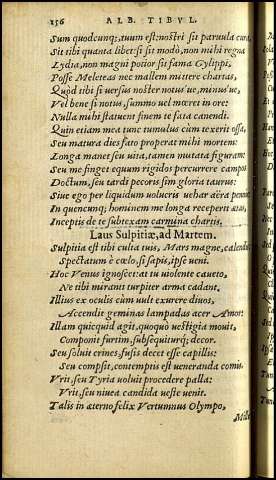 156 ALB. TIBVL.
Sum quodcunq; tuum est: nostri sit paruula cura,
Sit tibi quanta libet: si sit modò, non mihi regna
Lydia, non magni potior sit fama Gylippi,
Posse Meleteas nec mallem mittere chartas,
Quòd tibi si uersus noster notus'ue, minus'ue,
Vel bene si notus, summo uel moeret in ore:
Nulla mihi statuent finem te fata canendi.
Quin etiam mea tunc tumulus cùm texerit ossa,
Seu matura dies fato properat mihi mortem:
Longa manet seu uita, tamen mutata figuram:
Seu me finget equum rigidos percurrere campos
Doctum, seu tardi pecoris sim gloria taurus:
Siue ego per liquidum uolucris uehar aëra pennis
In quencunq; hominem me longa receperit ætas,
Inceptis de te subtexam carmina chartis.
Laus Sulpitiæ, ad Martem.
Sulpitia est tibi culta tuis, Mars magne, calendis
Spectatum è coelo, si sapis, ipse ueni.
Hoc Venus ignoscet: at tu uiolente caueto,
Ne tibi miranti turpiter arma cadant.
Illius ex oculis cùm uult exurere diuos,
Accendit geminas lampadas acer Amor:
Illam quicquid agit, quoquò uestigia mouit,
Componit furtim, subsequiturq; decor.
Seu soluit crines, fusis decet esse capillis:
Seu compsit, comptis est ueneranda comis.
Vrit, seu Tyria uoluit procedere palla:
Vrit, seu niuea candida ueste uenit.
Talis in æterno felix Vertumnus Olympo,
Mille